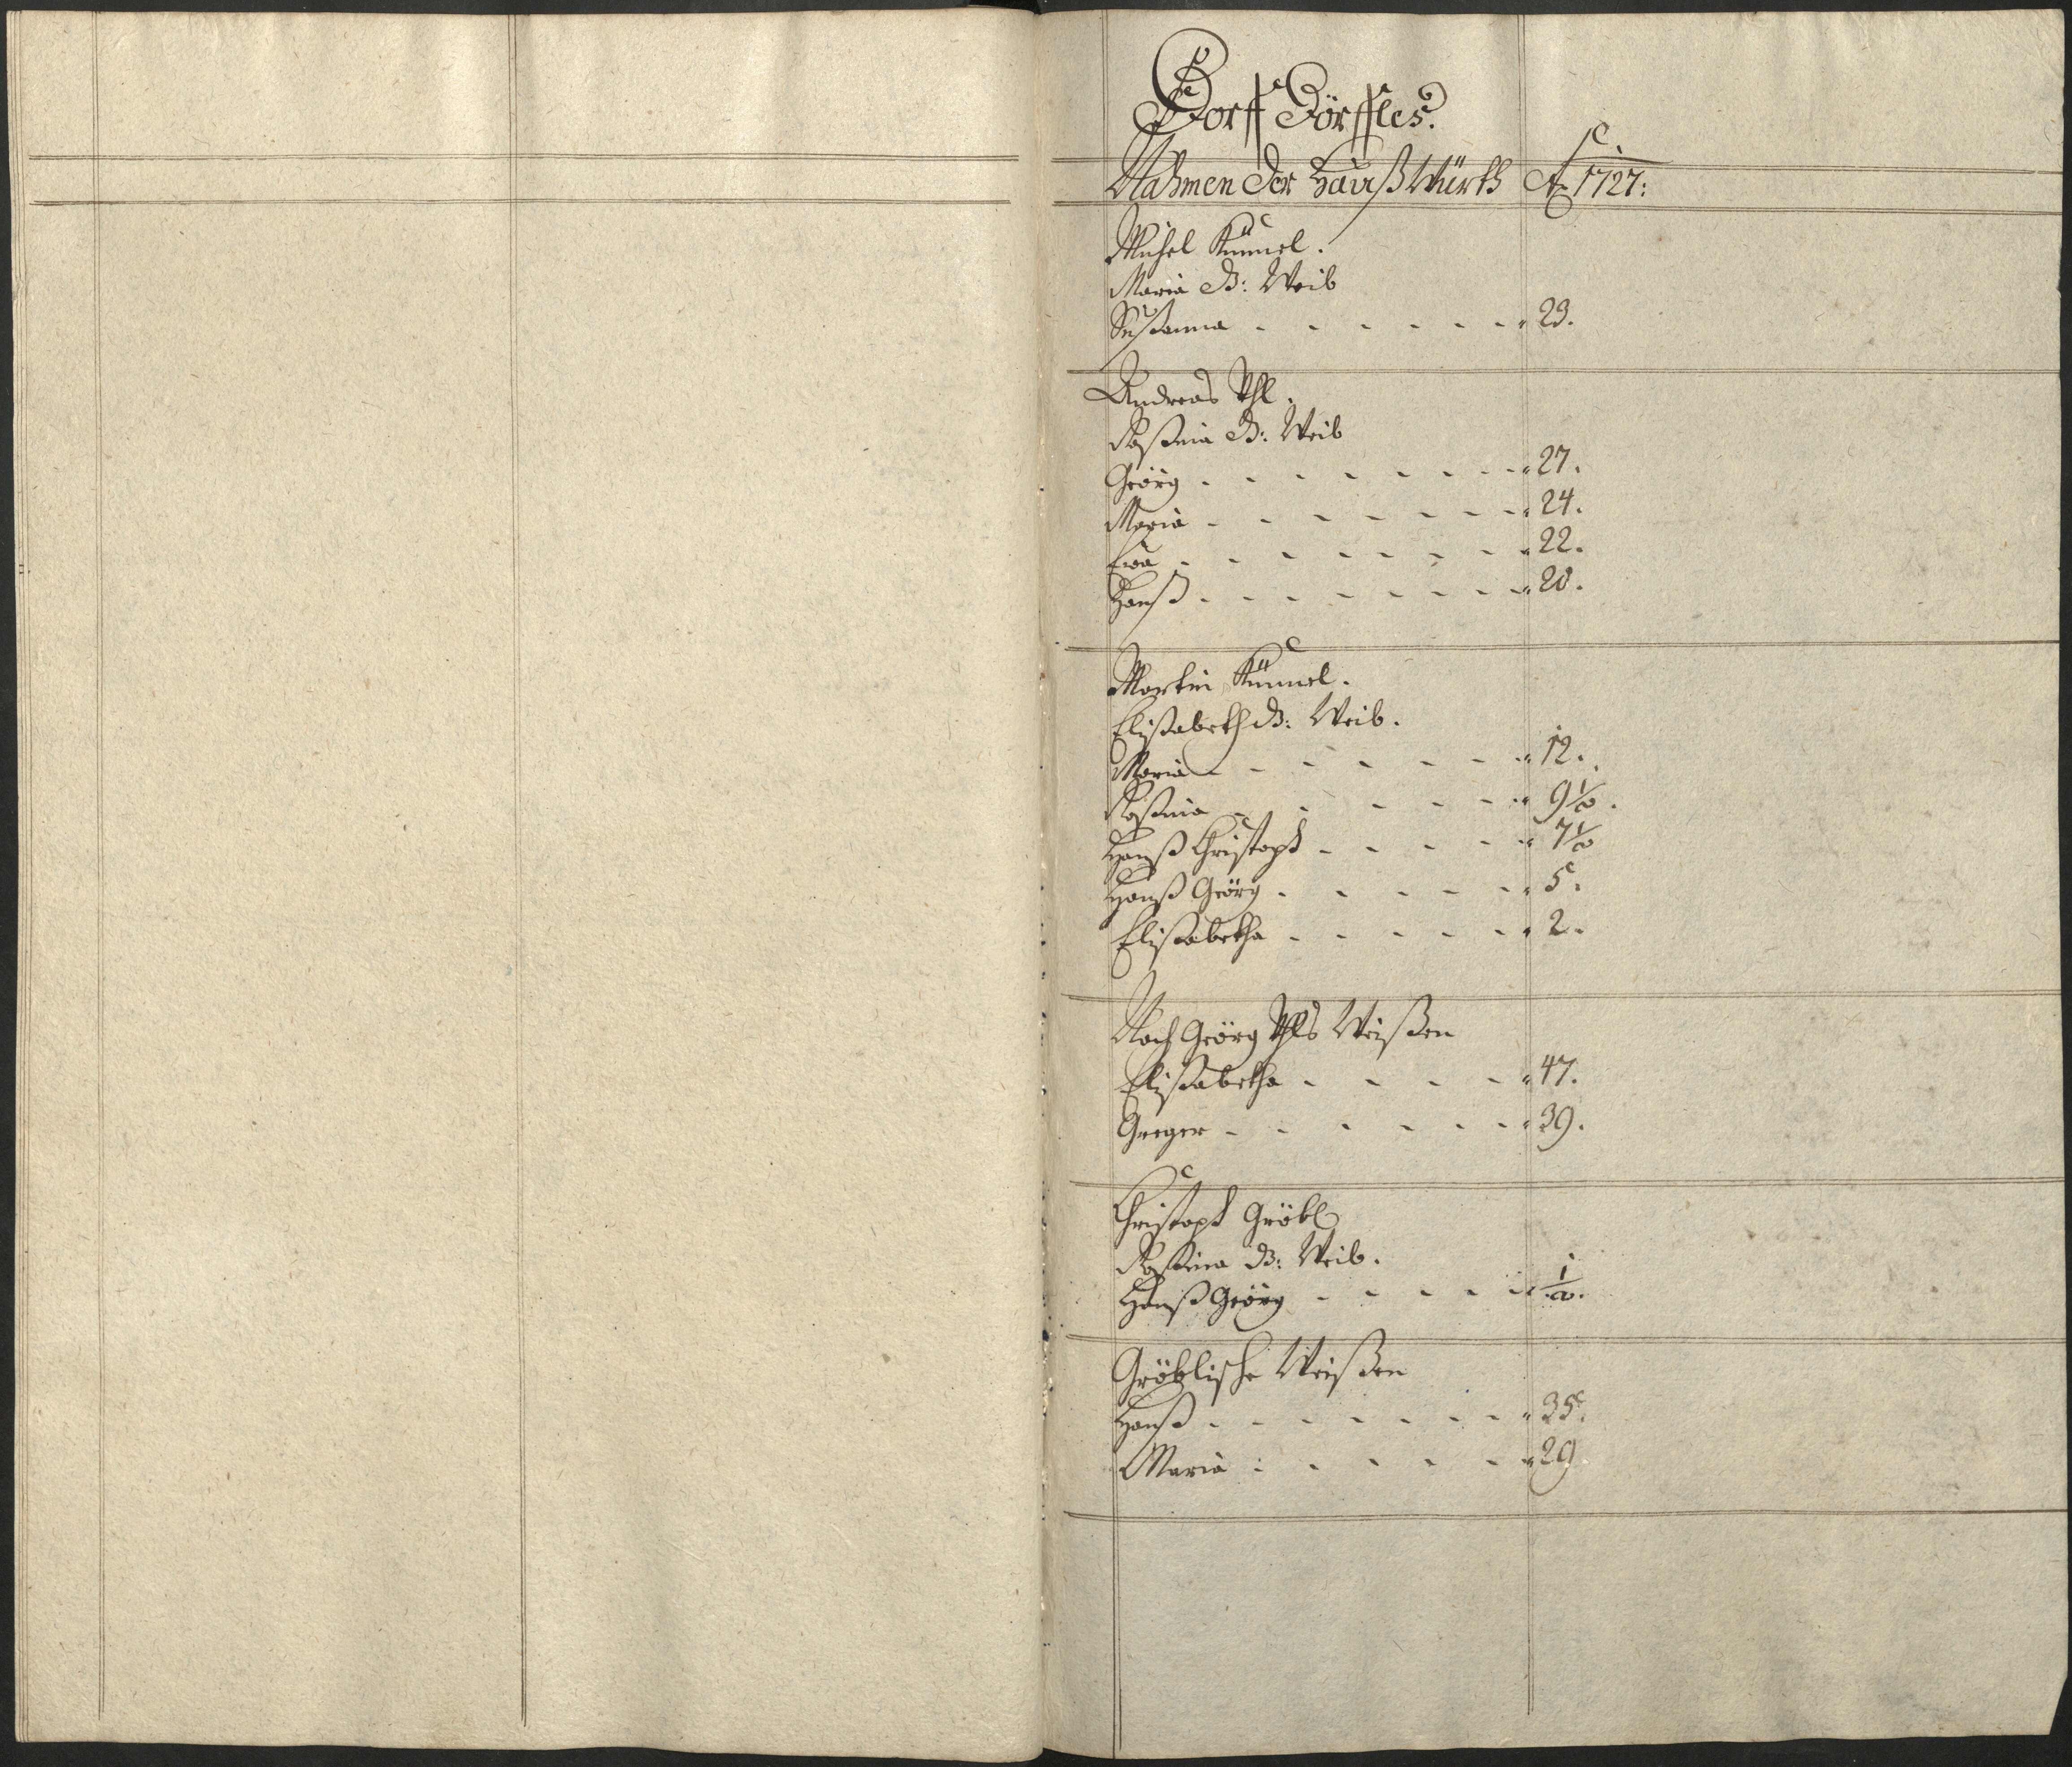 Dorff Dörffles.
Nahmen der Haußwürth Ao 1727:
Michel Kümmel.
Maria B: Weib
Susanna - - - - - - 23.
Andreas Uhl.
Rosina B: Weib
Geörg - - - - - - 27.
Maria - - - - - - 24.
Eva - - - - - - 22.
Hanß - - - - - - 20.
Martin Kümmel.
Elisabeth B: Weib.
Maria - - - - - - 12.
Rosina - - - - - 9 1/2.
Hanß Christoph - - - - 7 1/2
Hanß Geörg - - - - - 5.
Elisabetha - - - - - 2.
Nach Geörg Uhls Weisen
Elisabetha - - - - 47.
Greger - - - - - - 39.
Christoph Gröbl
Rosina B: Weib.
Hanß Geörg - - - - - 1/2.
Gröblische Weisen
Hanß - - - - - - 35.
Maria - - - - - 29.